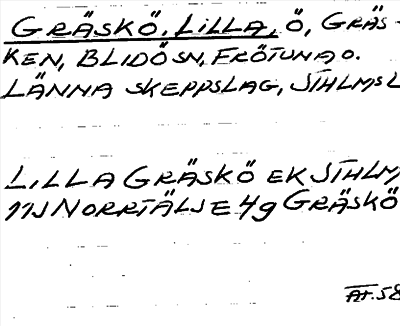 GRÄSKÖ, LILLA, Ö, GRÄS-
KEN, BLIDÖ SN, FRÖTUNA O.
LÄNNA SKEPPSLAG, STHLMS L
LILLA GRÄSKÖ EK STHLM
11J NORRTÄLJE 4g GRÄSKÖ
AT. 58